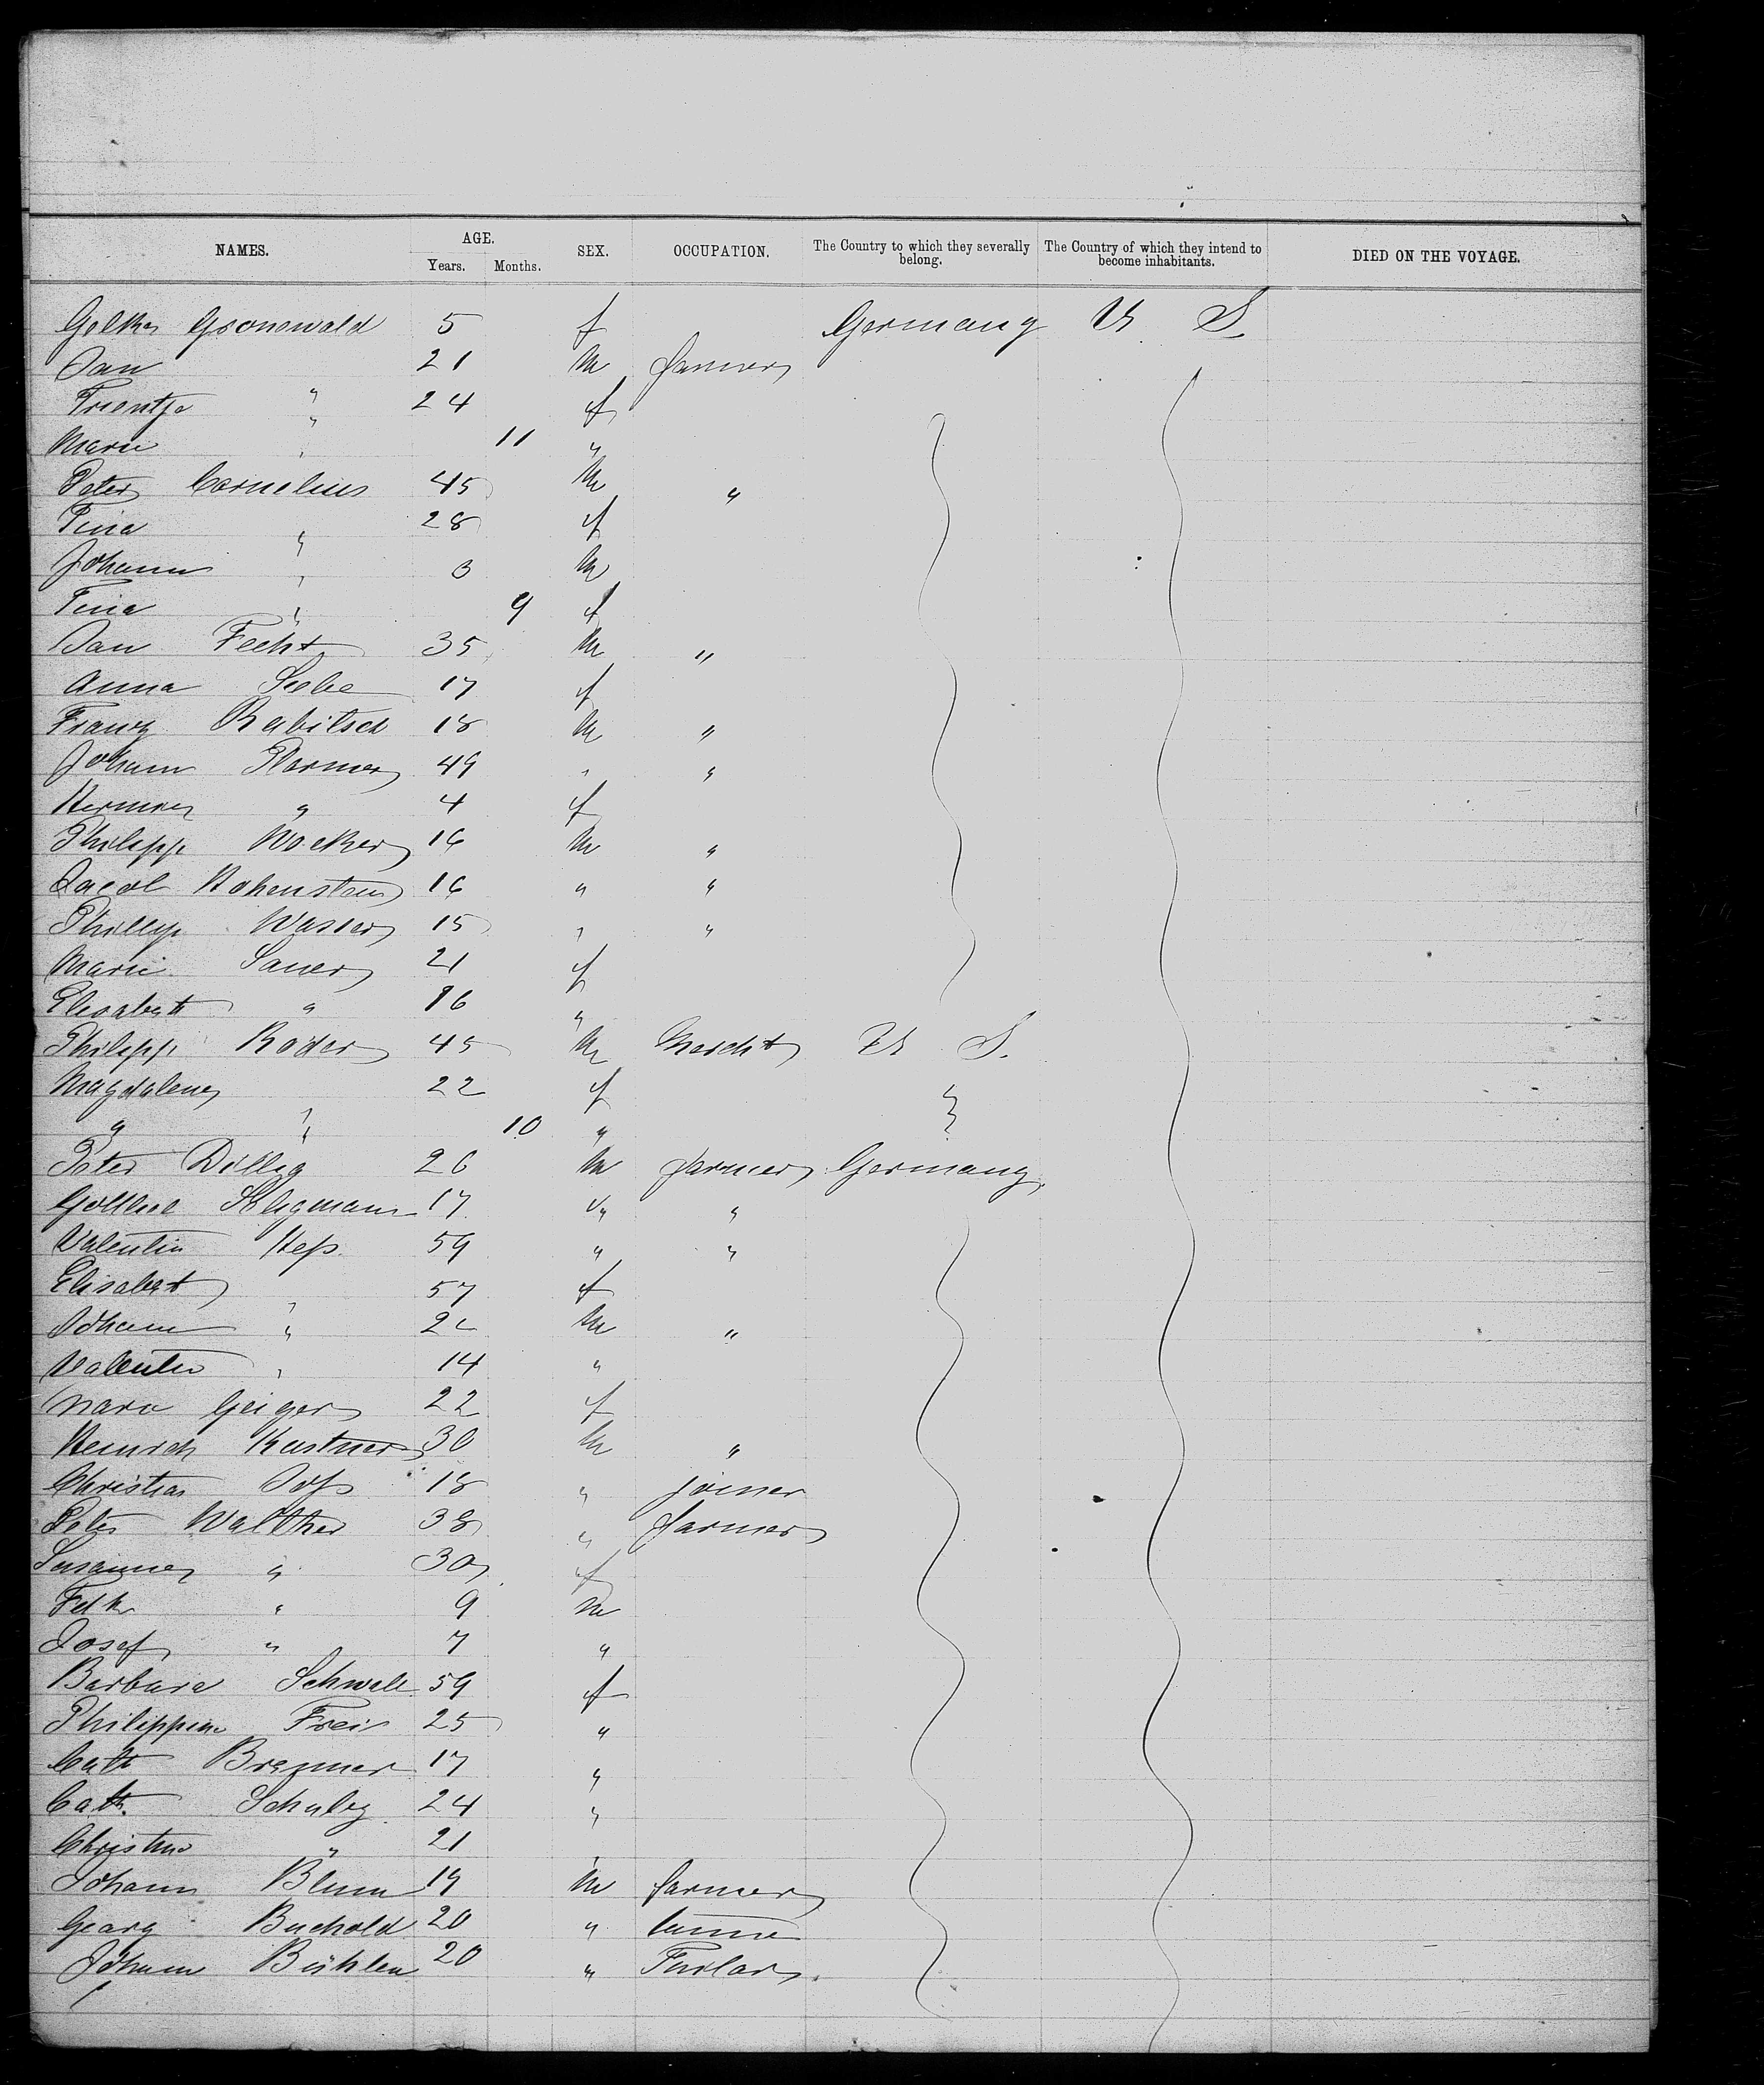 NAMES. AGE. SEX. OCCUPATION. The Country to which they severally belong. The Country of which they intend to become inhabitants. DIED ON THE VOYAGE.
Years. Months.
Gronewald 5 f Germany U S
Jan " 21 m farmer
Trientje " 24 f
Marie " 11 "
Peter Cornelius 45 m "
Tina " 28 f
Johann " 3 m
Tina " 9 f
Jan Fecht 35 m "
Anna 17 f
Franz Rabitsch 18 m "
Johann 49 " "
" 4 f
Philipp Wacker 16 m "
Jacob Hohenstein 16 " "
Phillip Wasser 15 " "
Marie Sauer 21 f
Elisabeth " 16 "
Philipp Röder 45 m Mercht U S.
Magdalena " 22 f
" " 10 "
Peter Dillig 26 m farmer Germany
Gottlieb 17 " "
Valentin Hess 59 " "
Elisabeth " 57 f
Johann " m "
Valentin " 14 "
Geiger 22 f
Heinrich Kastner 30 m "
Christian 18 " joiner
Peter Walther 38 " farmer
Susanna " 30 f
" 9 m
Josef " 7 "
Barbara Schwab 59 f
Philippine Frei 25 "
Cath Bremmer 17 "
Cath. Schulz 24 "
Christine " 21 "
Johann Blum 19 m farmer
Georg Buchold 20 "
Johann Bühler 20 "